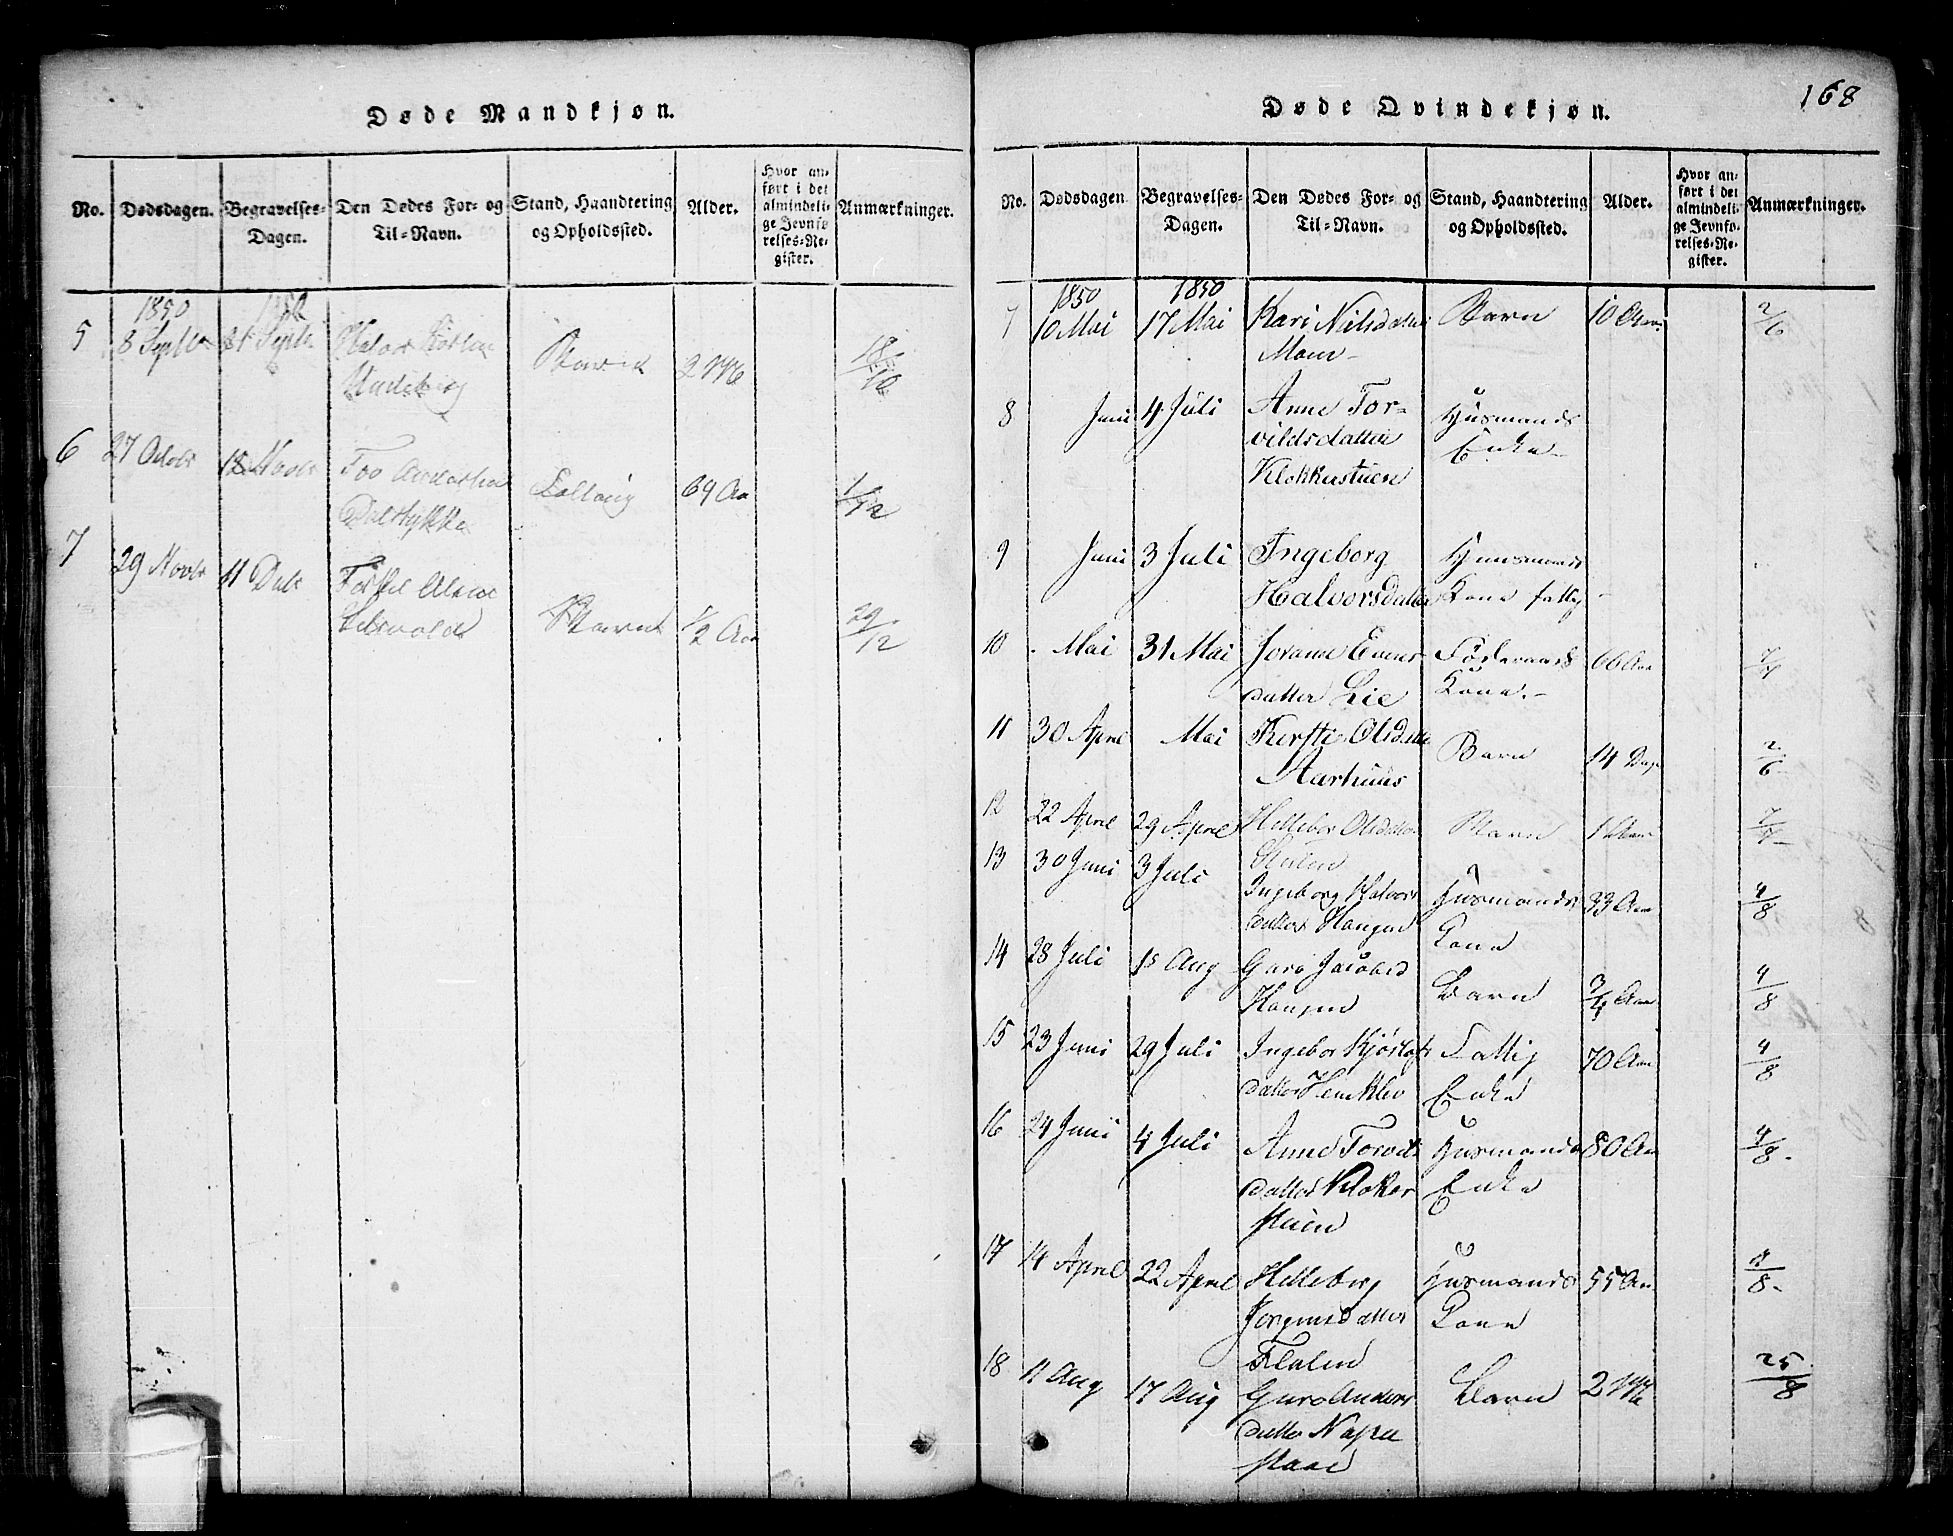 168
Døde Mandkjøn.
No. Dødsdagen. Begravelses-Dagen. Den Dødes For- og Til-Navn. Stand, Haandtering og Opholdssted. Alder. Hvor anført i det almindelige Jevnførelses-Register. Anmærkninger.
1850 1850
5 8 Septbr 21 Septbr Halvor Barn 2 M
18/10
6 27 Octobr 18 Novbr Tov Anderssen 69 Aar
1/12
7 29 Novbr 11 Decbr Torkel Olsen Barn 1/2 Aar
29/12
Døde Qvindekjøn.
No. Dødsdagen Begravelses-Dagen. Den Dødes For- og Til-Navn. Stand, Haandtering og Opholdssted. Alder. Hvor anført i det almindelige Jevnførelses-Register. Anmærkninger.
1850 1850
7 10 Mai 17 Mai Kari Nielsdatter Barn 10 Aar 2/6
Moen
8 Juni 4 Juli Anne Tor- Husmands
vildsdatter Enke
Klokkerstuen
9 Juni 3 Juli Ingeborg Huusmands
Halvorsdatter Kone fattig
10 Mai 31 Mai Jorann Evens- Føderaads 66 Aar 7/7
datter Lie Kone.
11 30 April Mai Kirsti Olsdatter Barn 14 Dage 2/6
Aarhuus
12 22 April 29 April Hellebor Olsdatter Barn 1 Aar 7/7
13 30 Juni 3 Juli
Ingeborg Halvors Husmands 33 Aar 4/8
datter Haugen Kone
14 28 Juli 15 Aug Guro Jacobsd Barn 3/4 Aar 4/8
Haugen
15 23 Juni 29 Juli Ingebor Kjøstols Fattig 70 Aar 4/8
datter Enke
16 24 Juni 4 Juli Anne Torvils Husmands 80 Aar 4/8
datter Kloker Enke
stuen
17 14 April 22 April Helleborg Husmands 55 Aar 4/8
Jørgensdatter Kone
Flalen
18 11 Aug 17 Aug Guro Anders Barn 2 M 25/8
datter Napa
staae